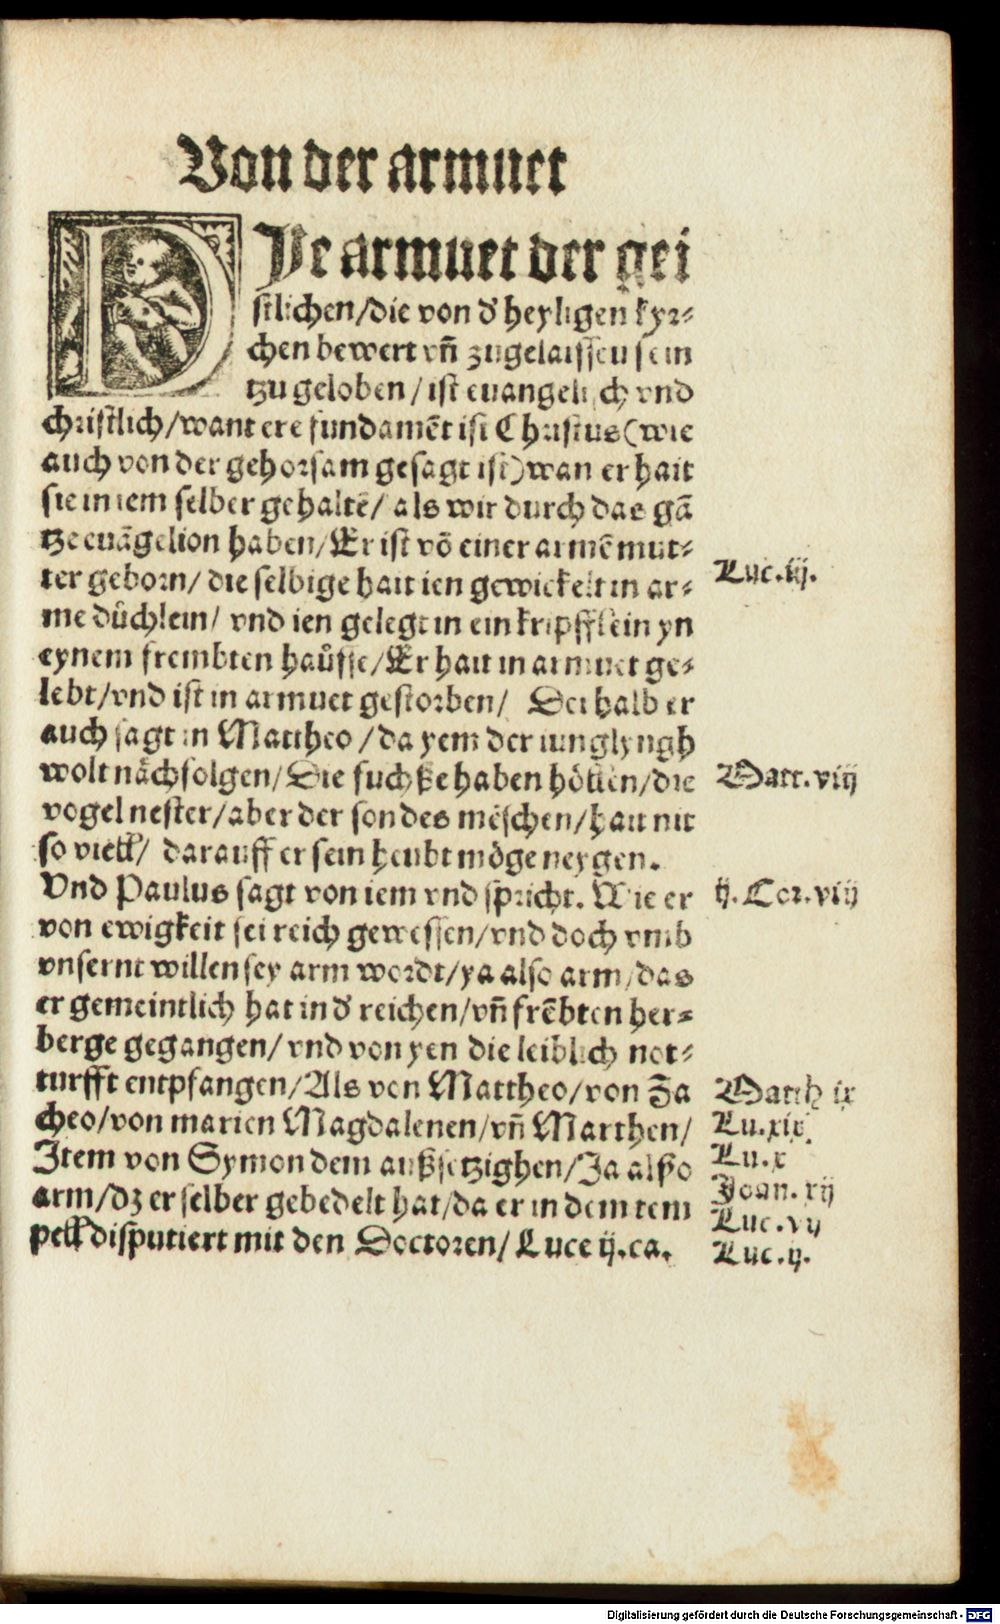 Von der armuet
DYe armuet der gei
stlichen/die von d' heyligen kyr⸗
chen bewert vñ zugelaissen sein
tzu geloben/ ist euangelisch vnd
christlich/want ere fundamēt ist Christus(wie
auch von der gehorsam gesagt ist)wan er hait
sie in iem selber gehaltē/ als wir durch das gā
tze euāgelion haben/Er ist vō einer armē mut⸗
ter geborn/ die selbige hait ien gewickelt in ar⸗
me dûchlein/ vnd ien gelegt in ein kripfflein yn
eynem frembten haûsse/Er hait in armuet ge⸗
lebt/vnd ist in armuet gestorben/ Deshalb er
auch sagt in Mattheo /da yem der iunglyngh
wolt nâchfolgen/Die fuchße haben hôllen/die
vogel nester/aber der son des mēschen/hait nit
so viell/ darauff er sein heubt môge neygen.
Vnd Paulus sagt von iem vnd spricht. Wie er
von ewigkeit sei reich gewessen/vnd doch vmb
vnsernt willen sey arm wordt/ya also arm/das
er gemeintlich hat in d' reichen/vñ frēbten her⸗
berge gegangen/ vnd von yen die leiblich not⸗
turfft entpfangen/Als von Mattheo/von Za
cheo/von marien Magdalenen/vñ Marthen/
Item von Symon dem außsetzighen/Ja alßo
arm/dz er selber gebedelt hat/da er in dem tem
pell disputiert mit den Doctoren/ Luce ij.ca.
Luc.iij.
Matt.viij
ij.Cor.viij
Matth ix
Lu.xix
Lu.x
Joan.xij
Luc.vij
Luc.ij.
Digitalisierung gefördert durch die Deutsche Forschungsgemeinschaft - DFG